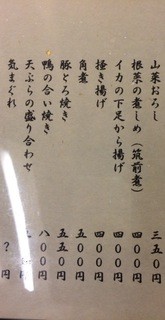 山菜おろし 三五〇円
根菜の煮しめ（筑前煮） 四〇〇円
イカの下足から揚げ 四〇〇円
掻き揚げ 四〇〇円
角煮 五〇〇円
豚とろ焼き 五五〇円
鴨の合い焼き 八〇〇円
天ぷらの盛り合わせ 円
気まぐれ ？円